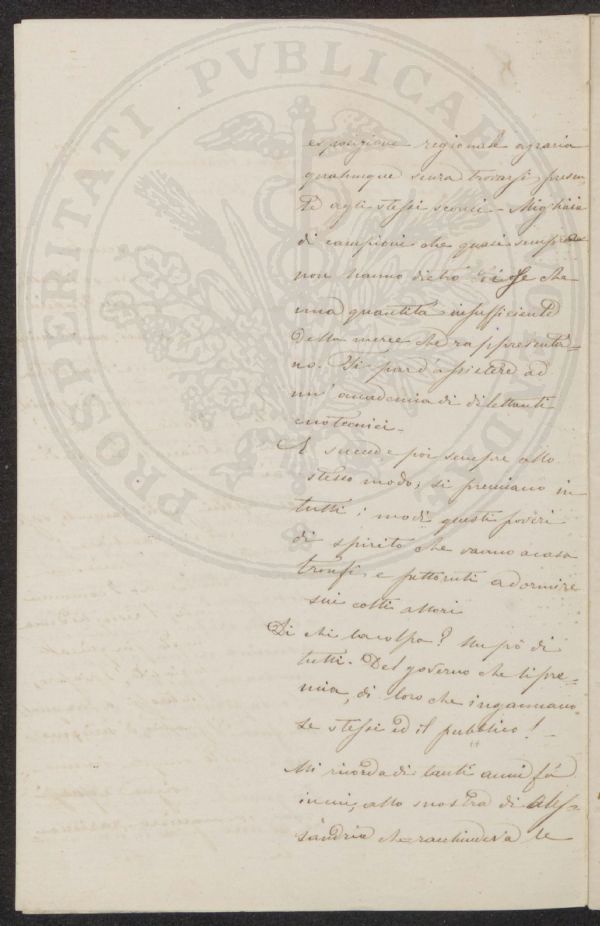 PROSPERITATI PVBLICAE
esposizione regionale agraria
qualunque senza trovarsi presen
te agli stessi sconci - Migliaia
di campioni che quasi sempre
non hanno dietro di se che
una quantità insufficiente
della merce che rappresenta=
no. Vi par d'assistere ad
un' accademia di dilettanti
enotecnici -
E succede poi sempre allo
stesso modo; si premiano in
tutti i modi questi poveri
di spirito che vanno a casa
tronfi e pettoruti a dormire
sui colti allori
Di chi la colpa? Un pò di
tutti. Del governo che li pre=
mia, di loro che ingannano
se stessi ed il pubblico! -
Mi ricorda di tanti anni fà
in cui, allo mostra di Ales=
sandria che racchiudeva le